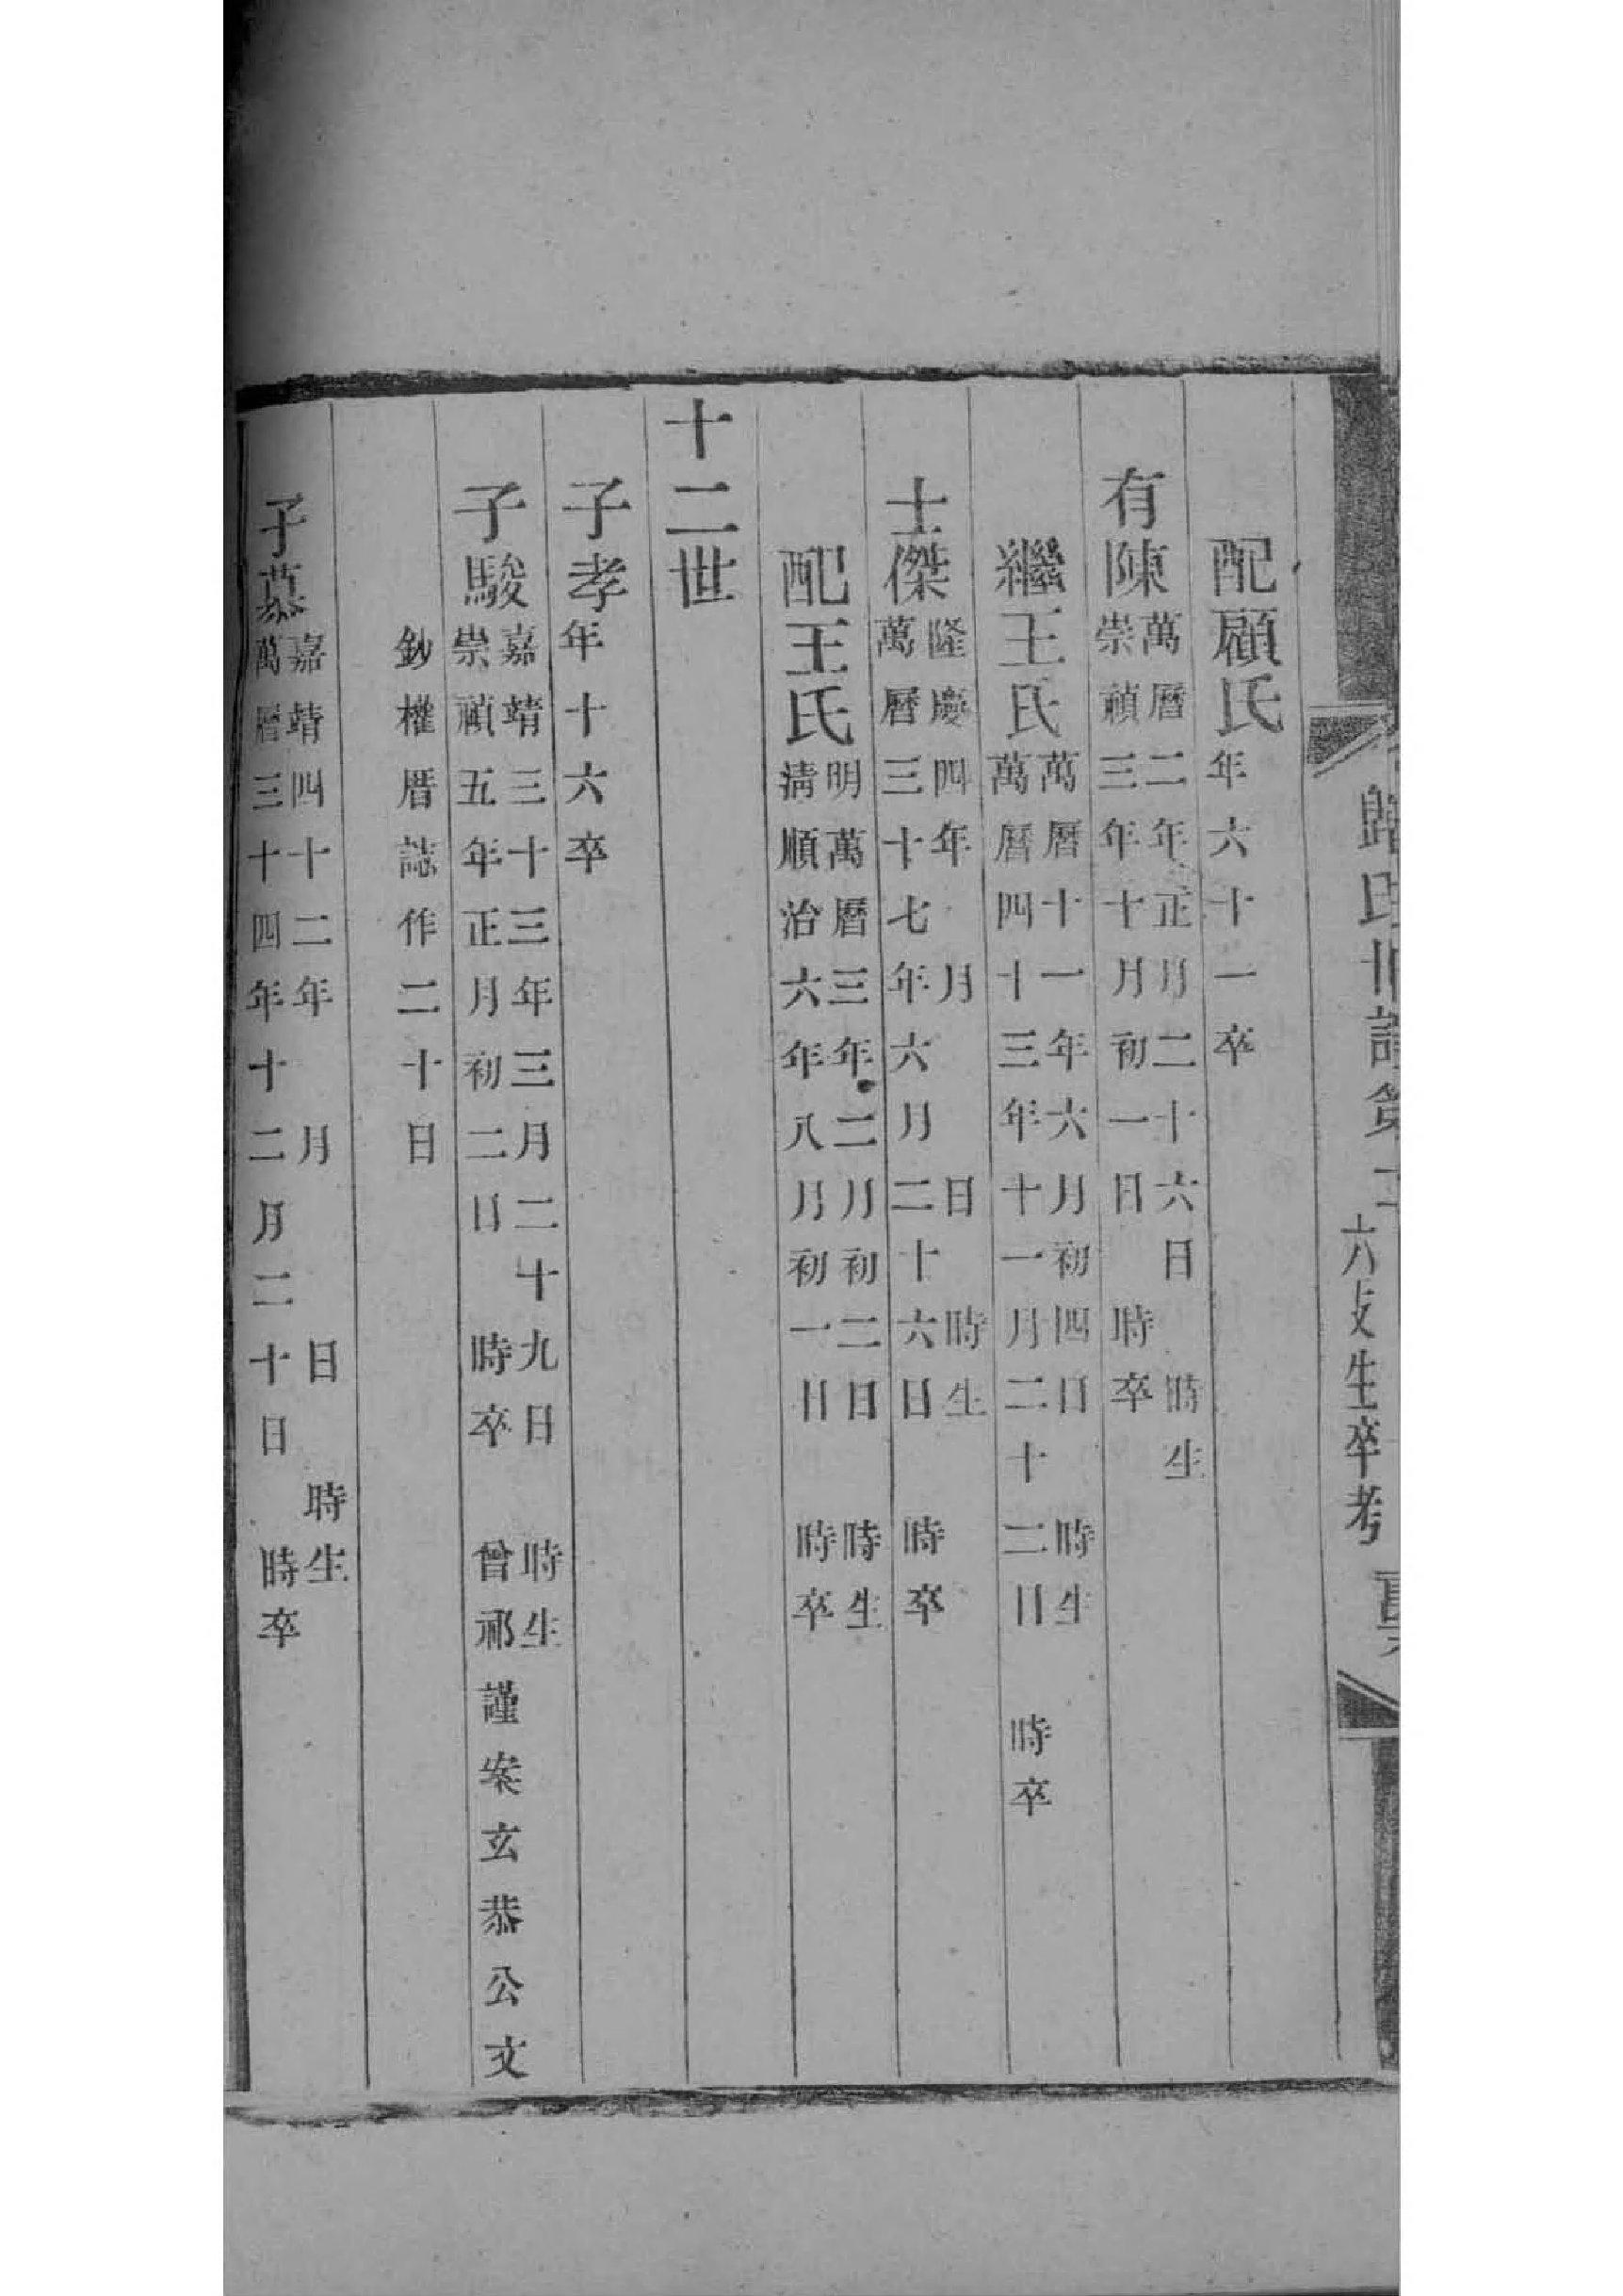 歸氏世譜第十
六支生卒考
配顧氏年六十一卒
有陳萬曆二年正月二十六日 時生
崇禎三年十月初一日 時卒
繼王氏萬曆十一年六月初四日 時生
萬曆四十三年十一月二十二日 時卒
士傑隆慶四年 月 日 時生
萬曆三十七年六月二十六日 時卒
配王氏明萬曆三年二月初二日 時生
清順治六年八月初一日 時卒
十二世
子孝年十六卒
子駿嘉靖三十三年三月二十九日 時生
崇禎五年正月初二日 時卒 曾祁謹案玄恭公文
鈔權厝誌作二十日
子慕嘉靖四十二年 月 日 時生
萬曆三十四年十二月二十日 時卒